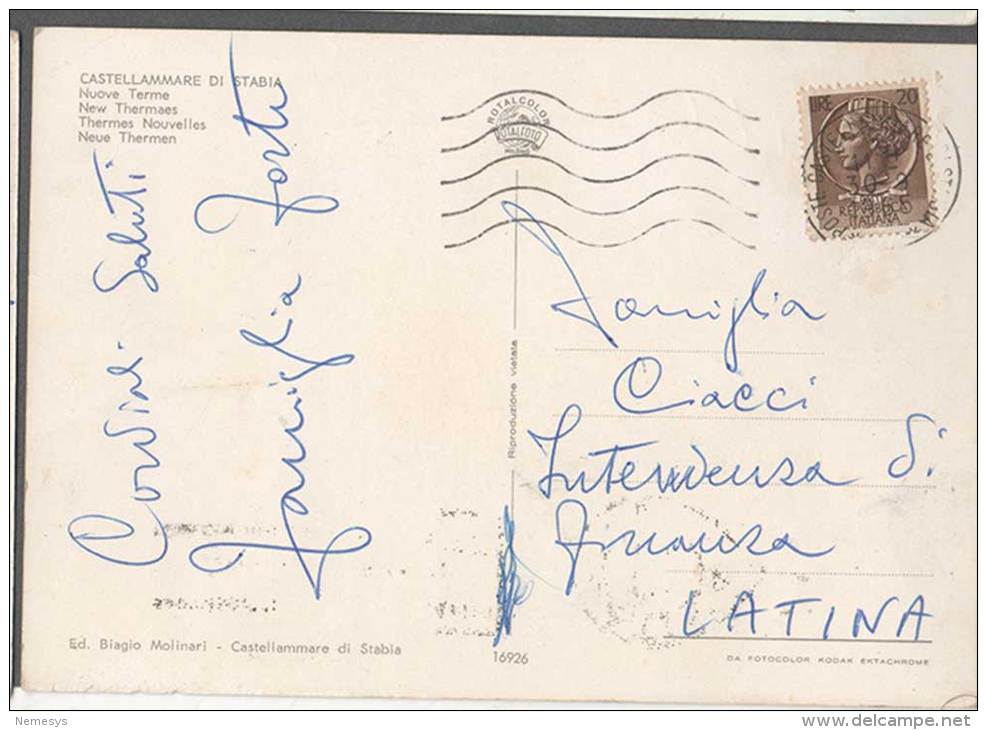 CASTELLAMMARE DI STABIA
Nuove Terme
New Thermaes
Thermes Nouvelles
Neue Thermen
Cordiali Saluti
Famiglia Forte
ROTALCOLOR
ROTALFOTO
MILANO
LIRE 20
30-3
1965
REPUBBLICA
ITALIANA
Riproduzione vietata
Famiglia
Ciacci
Intendenza di
Finanza
LATINA
Ed. Biagio Molinari - Castellammare di Stabia
16926
DA FOTOCOLOR KODAK EKTACHROME
Nemesys
delcampe.net